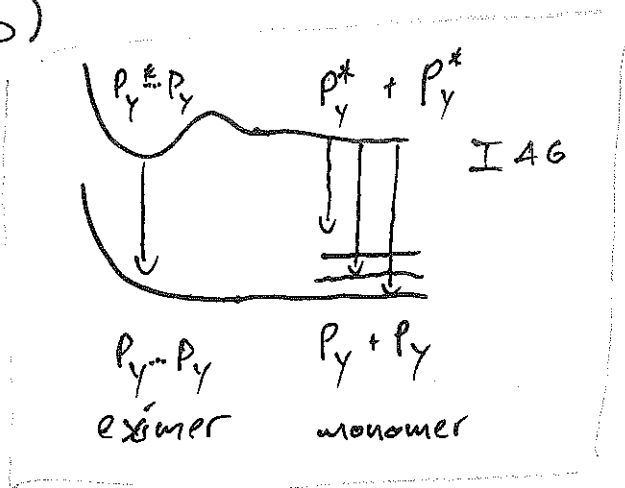 b)
Py*...Py Py* + Py*
I ΔG
Py...Py Py + Py
eximer monomer